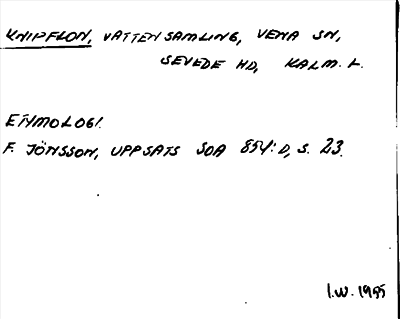 KNIPFLON, VATTENSAMLING, VENA SN,
SEVEDE HD, KALM. L.
ETYMOLOGI.
F. JÖNSSON, UPPSATS SOA 854:D, S. 23.
I.W. 1955